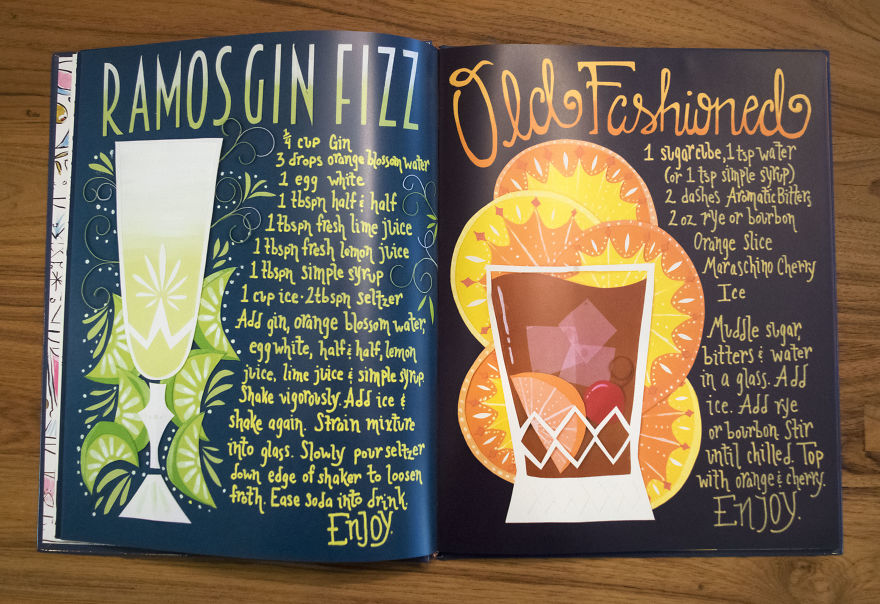 RAMOS GIN FIZZ
¼ cup Gin
3 drops orange blossom water
1 egg white
1 tbspn half & half
1 tbspn fresh lime juice
1 tbspn fresh lemon juice
1 tbspn simple syrup
1 cup ice · 2 tbspn seltzer
Add gin, orange blossom water,
egg white, half & half, lemon
juice, lime juice & simple syrup.
Shake vigorously. Add ice &
shake again. Strain mixture
into glass. Slowly pour seltzer
down edge of shaker to loosen
froth. Ease soda into drink.
ENJOY.
Old Fashioned
1 sugar cube, 1 tsp water
(or 1 tsp simple syrup)
2 dashes Aromatic Bitters
2 oz rye or bourbon
Orange Slice
Maraschino Cherry
Ice
Muddle sugar,
bitters & water
in a glass. Add
ice. Add rye
or bourbon. Stir
until chilled. Top
with orange & cherry.
ENJOY.